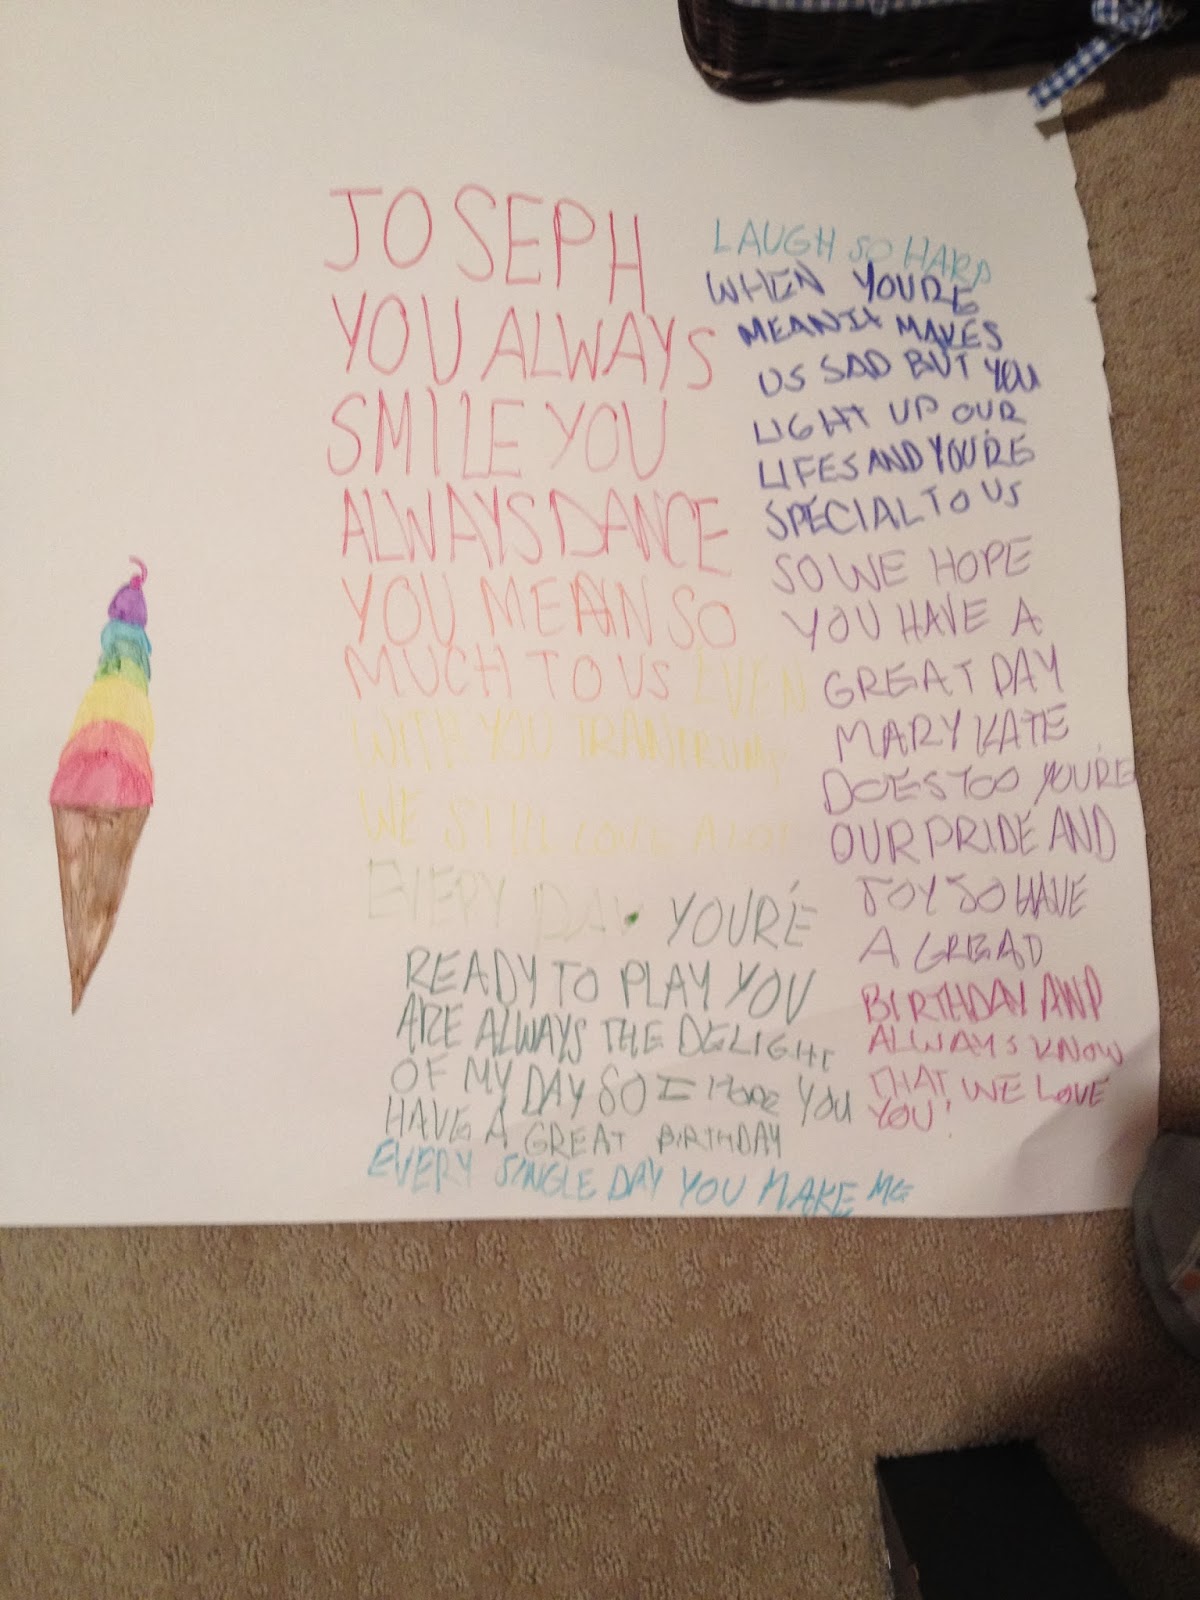 JOSEPH
YOU ALWAYS
SMILE YOU
ALWAYS DANCE
YOU MEAN SO
MUCH TO US EVEN
WITH YOU TRANTRUMP
WE STILL LOVE ALOT
EVERY DAY YOU'RE
READY TO PLAY YOU
ARE ALWAYS THE DELIGHT
OF MY DAY SO I HOPE YOU
HAVE A GREAT BIRTHDAY
EVERY SINGLE DAY YOU MAKE ME
LAUGH SO HARD
WHEN YOURE
MEAN IT MAKES
US SAD BUT YOU
LIGHT UP OUR
LIFES AND YOU'RE
SPECIAL TO US
SO WE HOPE
YOU HAVE A
GREAT DAY
MARY KATE
DOES TOO YOU'RE
OUR PRIDE AND
JOY SO HAVE
A GREAD
BIRTHDAY AND
ALWAYS KNOW
THAT WE LOVE
YOU!